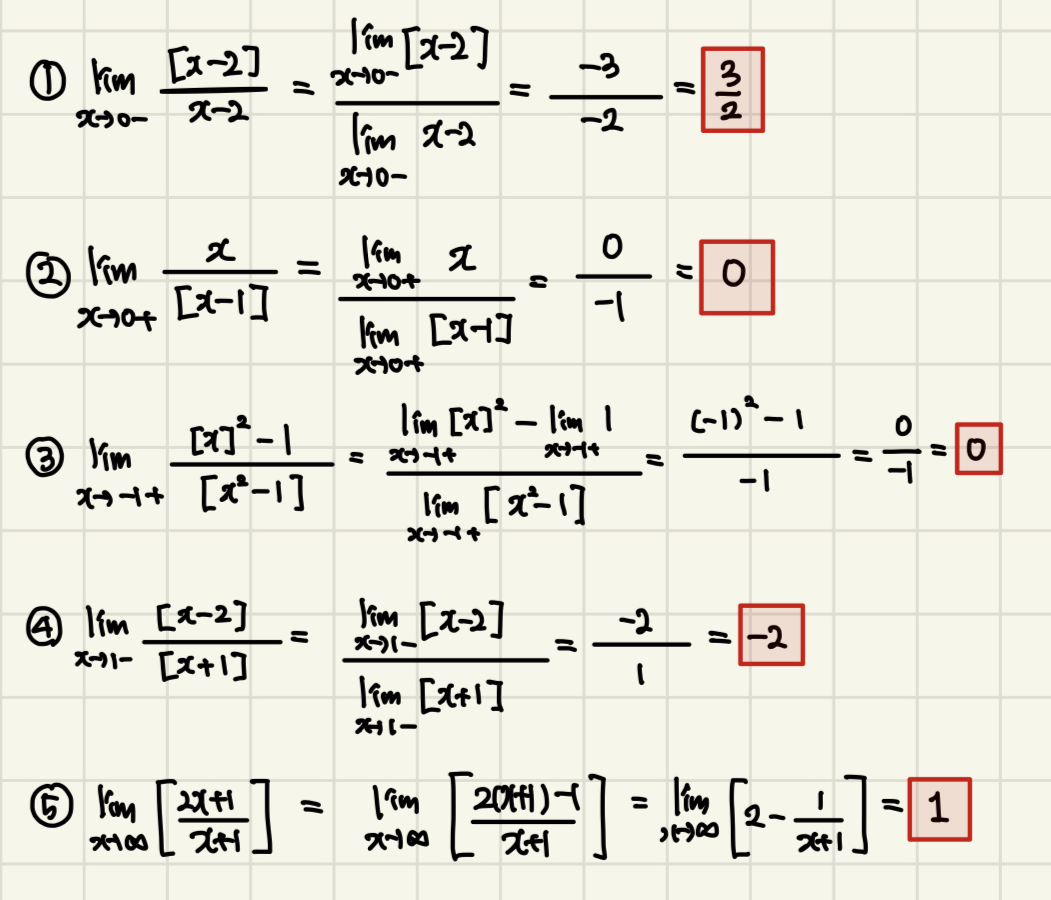 ① lim x→0- [x-2] / x-2 = lim x→0- [x-2] / lim x→0- x-2 = -3 / -2 = 3/2
② lim x→0+ x / [x-1] = lim x→0+ x / lim x→0+ [x-1] = 0 / -1 = 0
③ lim x→-1+ [x]² - 1 / [x²-1] = lim x→-1+ [x]² - lim x→-1+ 1 / lim x→-1+ [x²-1] = (-1)² - 1 / -1 = 0 / -1 = 0
④ lim x→1- [x-2] / [x+1] = lim x→1- [x-2] / lim x→1- [x+1] = -2 / 1 = -2
⑤ lim x→∞ [2x+1 / x+1] = lim x→∞ [2(x+1)-1 / x+1] = lim x→∞ [2 - 1 / x+1] = 1